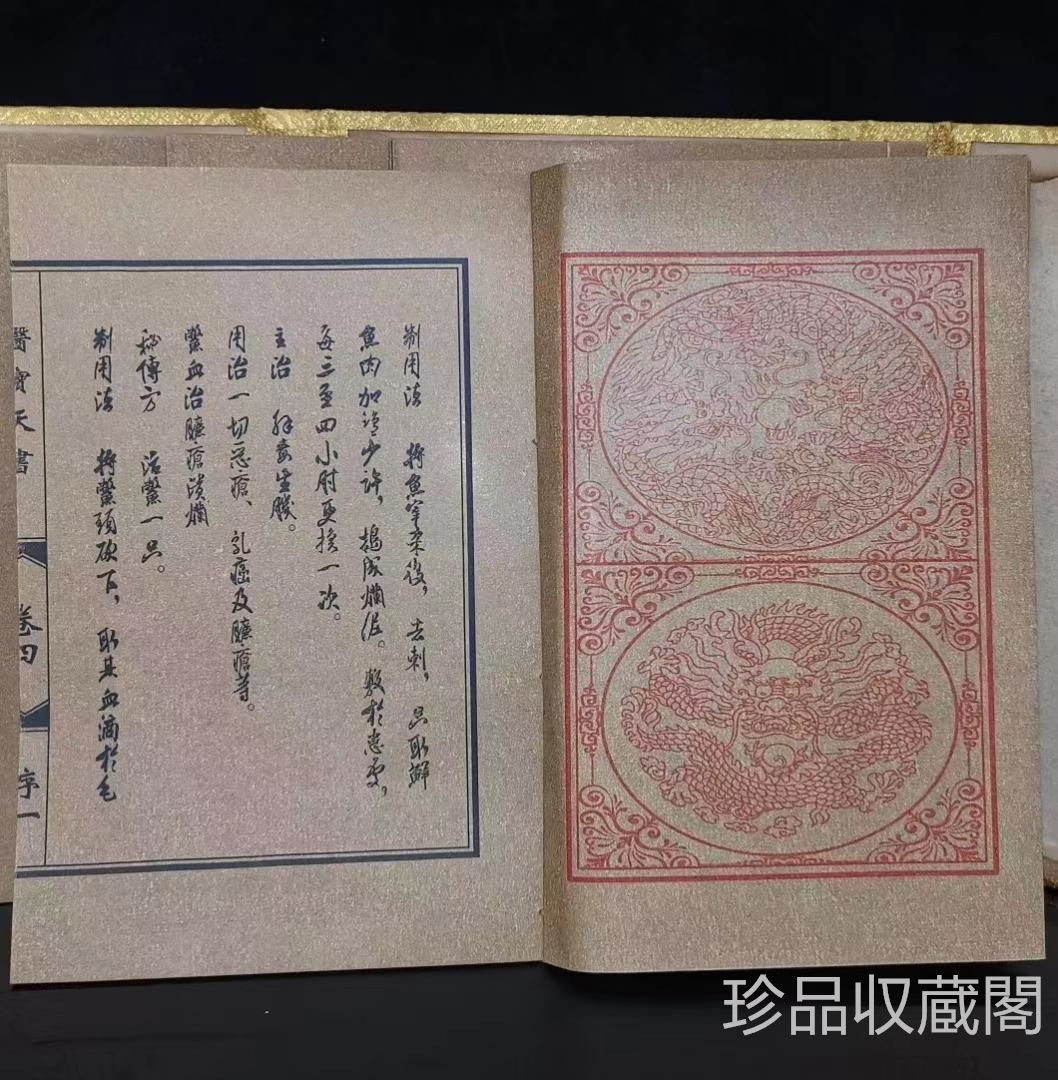 制用法　將魚宰杀後，去刺，只取鮮
魚肉加鹽少許，搗成爛泥。敷於患處，
每三至四小时更换一次。
主治　解毒生肌。
用治一切恶瘡、乳癌及臁瘡等。
鱉血治臁瘡潰爛
秘傳方　活鱉一只。
制用法　將鱉頭砍下，取其血滴於毛
醫寶天書　卷四　序一
珍品收蔵閣